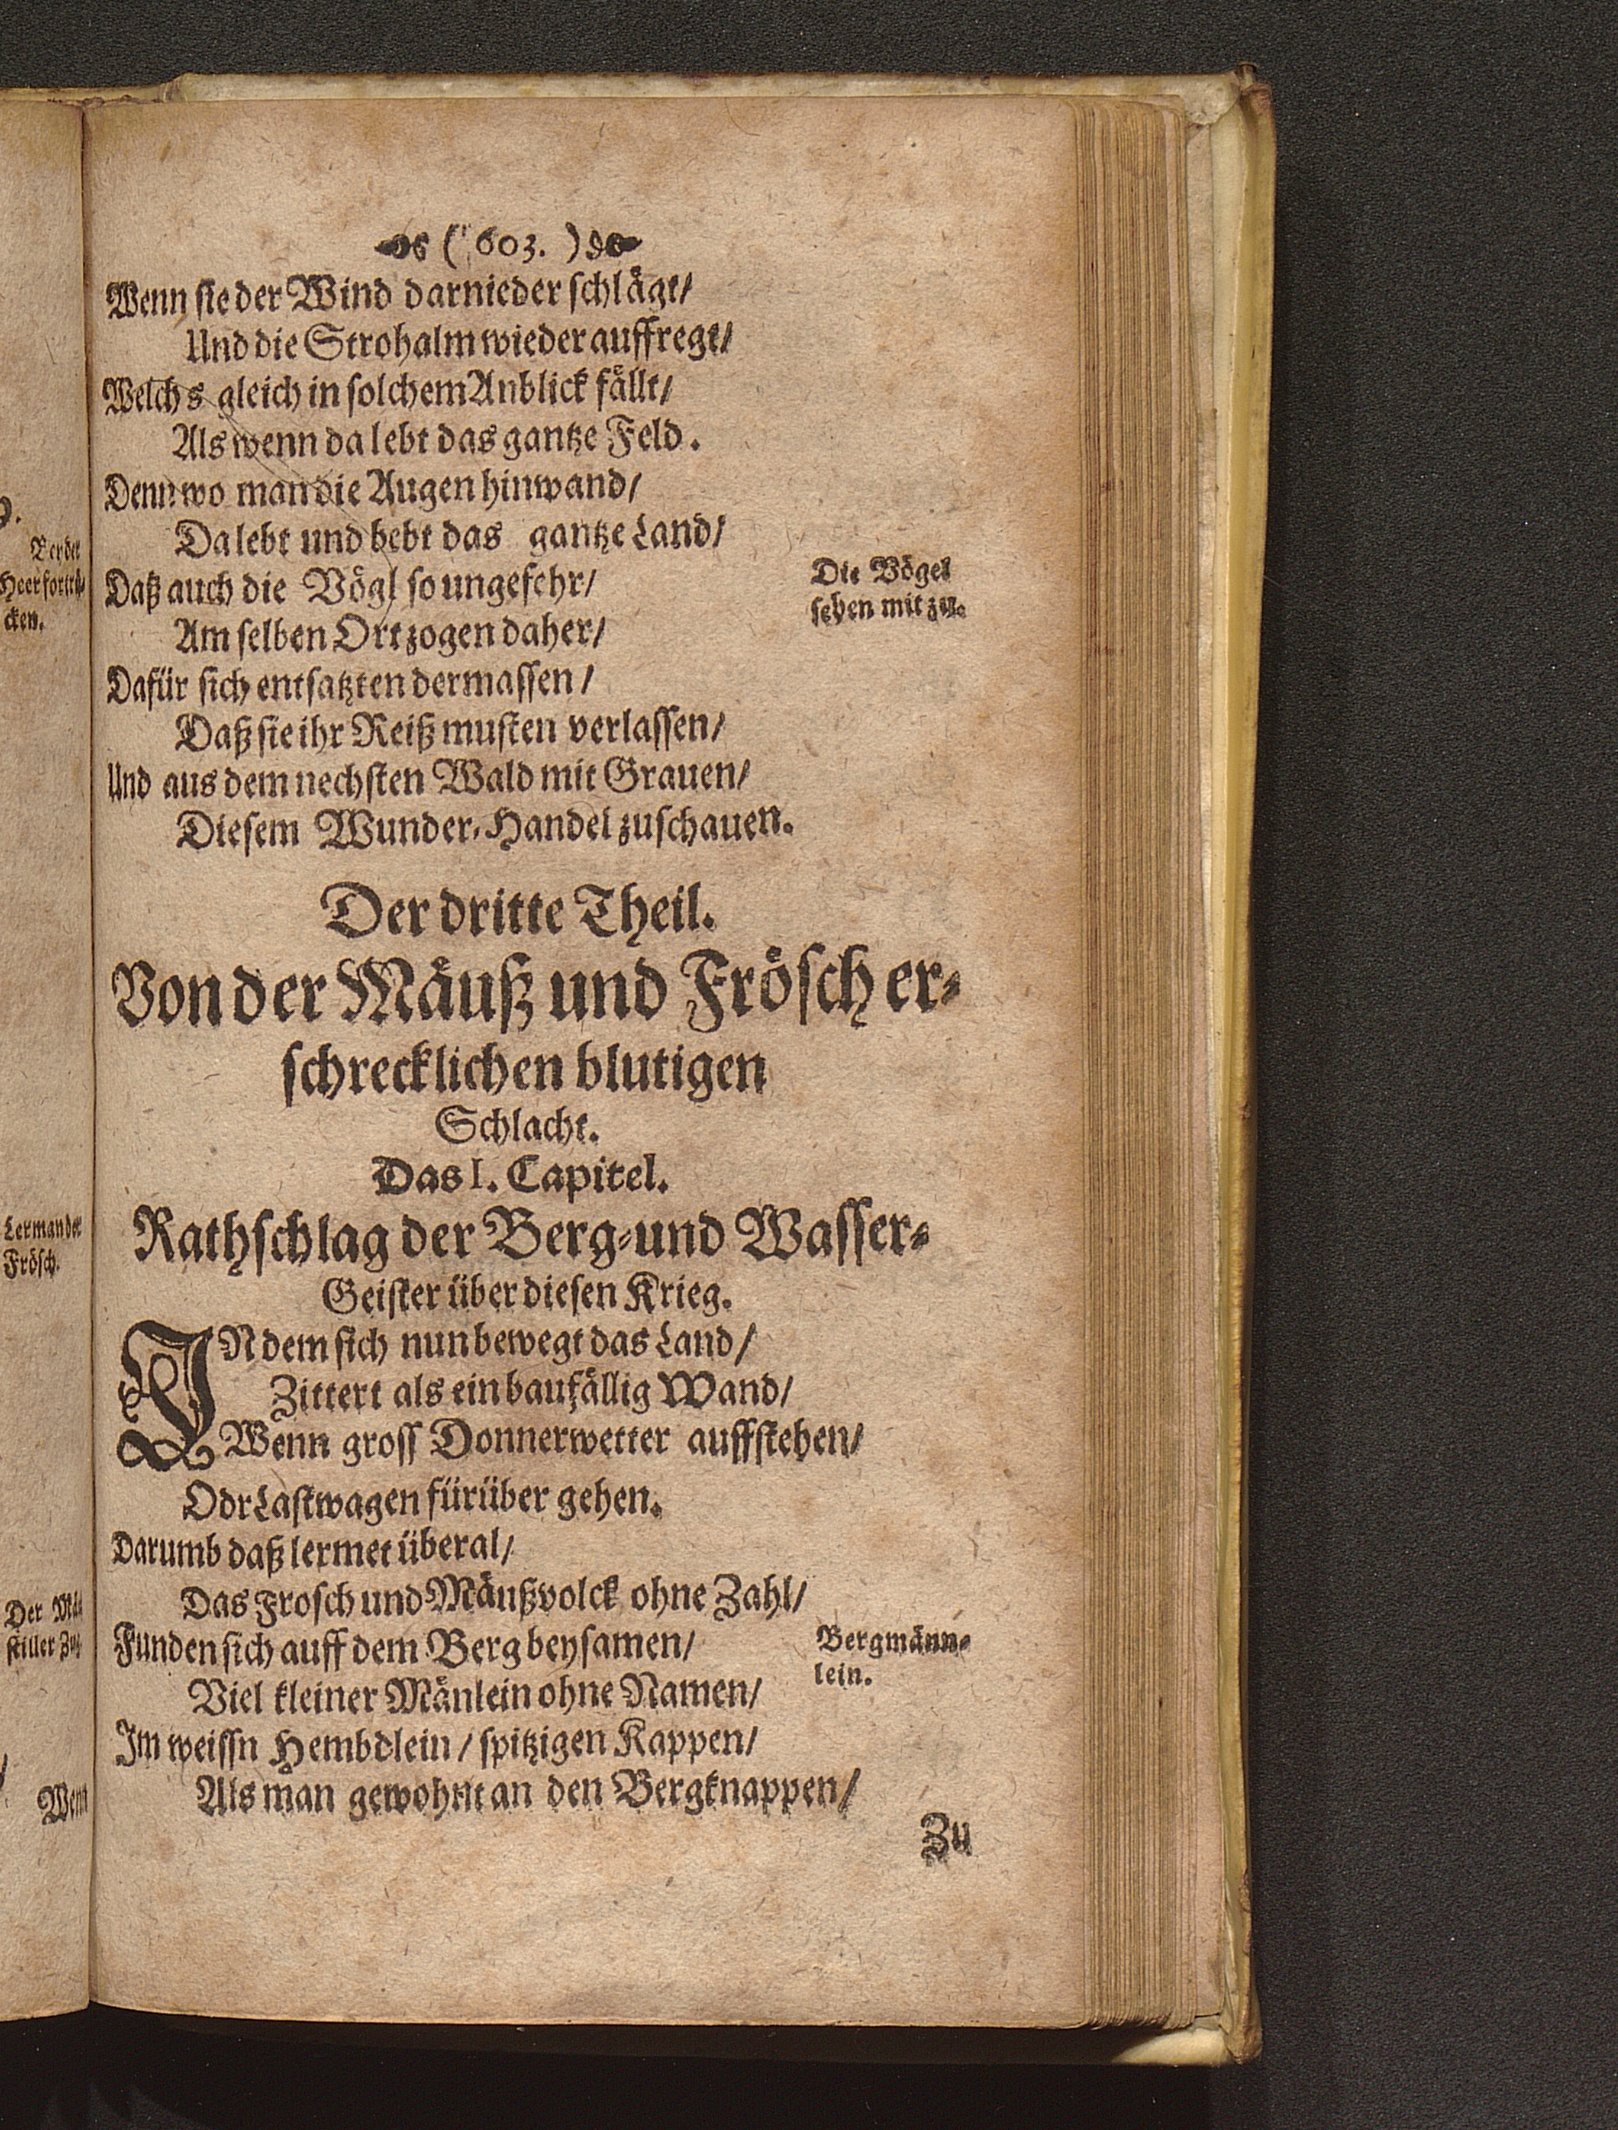 ( 603. )
Wenn sie der Wind darnieder schlägt/
Und die Strohalm wieder auffregt/
Welchs gleich in solchem Anblick fällt/
Als wenn da lebt das gantze Feld.
Denn wo man die Augen hinwand/
Da lebt und bebt das gantze Land/
Daß auch die Vögl so ungefehr/
Am selben Ort zogen daher/
Dafür sich entsatzten dermassen/
Daß sie ihr Reiß musten verlassen/
Und aus dem nechsten Wald mit Grauen/
Diesem Wunder-Handel zuschauen.
Die Vögel
sehen mit zu.
Der dritte Theil.
Von der Mäuß und Frösch er-
schrecklichen blutigen
Schlacht.
Das I. Capitel.
Rathschlag der Berg-und Wasser-
Geister über diesen Krieg.
INdem sich nun bewegt das Land/
Zittert als ein baufällig Wand/
Wenn gross Donnerwetter auffstehen/
Odr Lastwagen fürüber gehen.
Darumb daß lermet überal/
Das Frosch und Mäußvolck ohne Zahl/
Funden sich auff dem Berg beysamen/
Viel kleiner Mänlein ohne Namen/
Im weissn Hembdlein/ spitzigen Kappen/
Als man gewohnt an den Bergknappen/
Bergmänn-
lein.
Zu
cken.
Frösch.